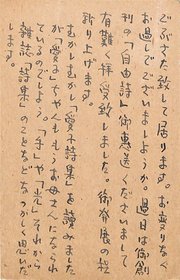 ごぶさた致して居ります。お変りなく
お過しでございませうか。過日は御創
刊の「自由詩」御恵送くださいまして
有難く拝受致しました。御発展の程
祈り上げます。
むかしむかし「愛子詩集」を讀みました
が「愛子」ちゃんももうお母さんになられ
てるのでしよう。「手」や「光」それから
雑誌「詩集」のことなどなつかしく思い
します。